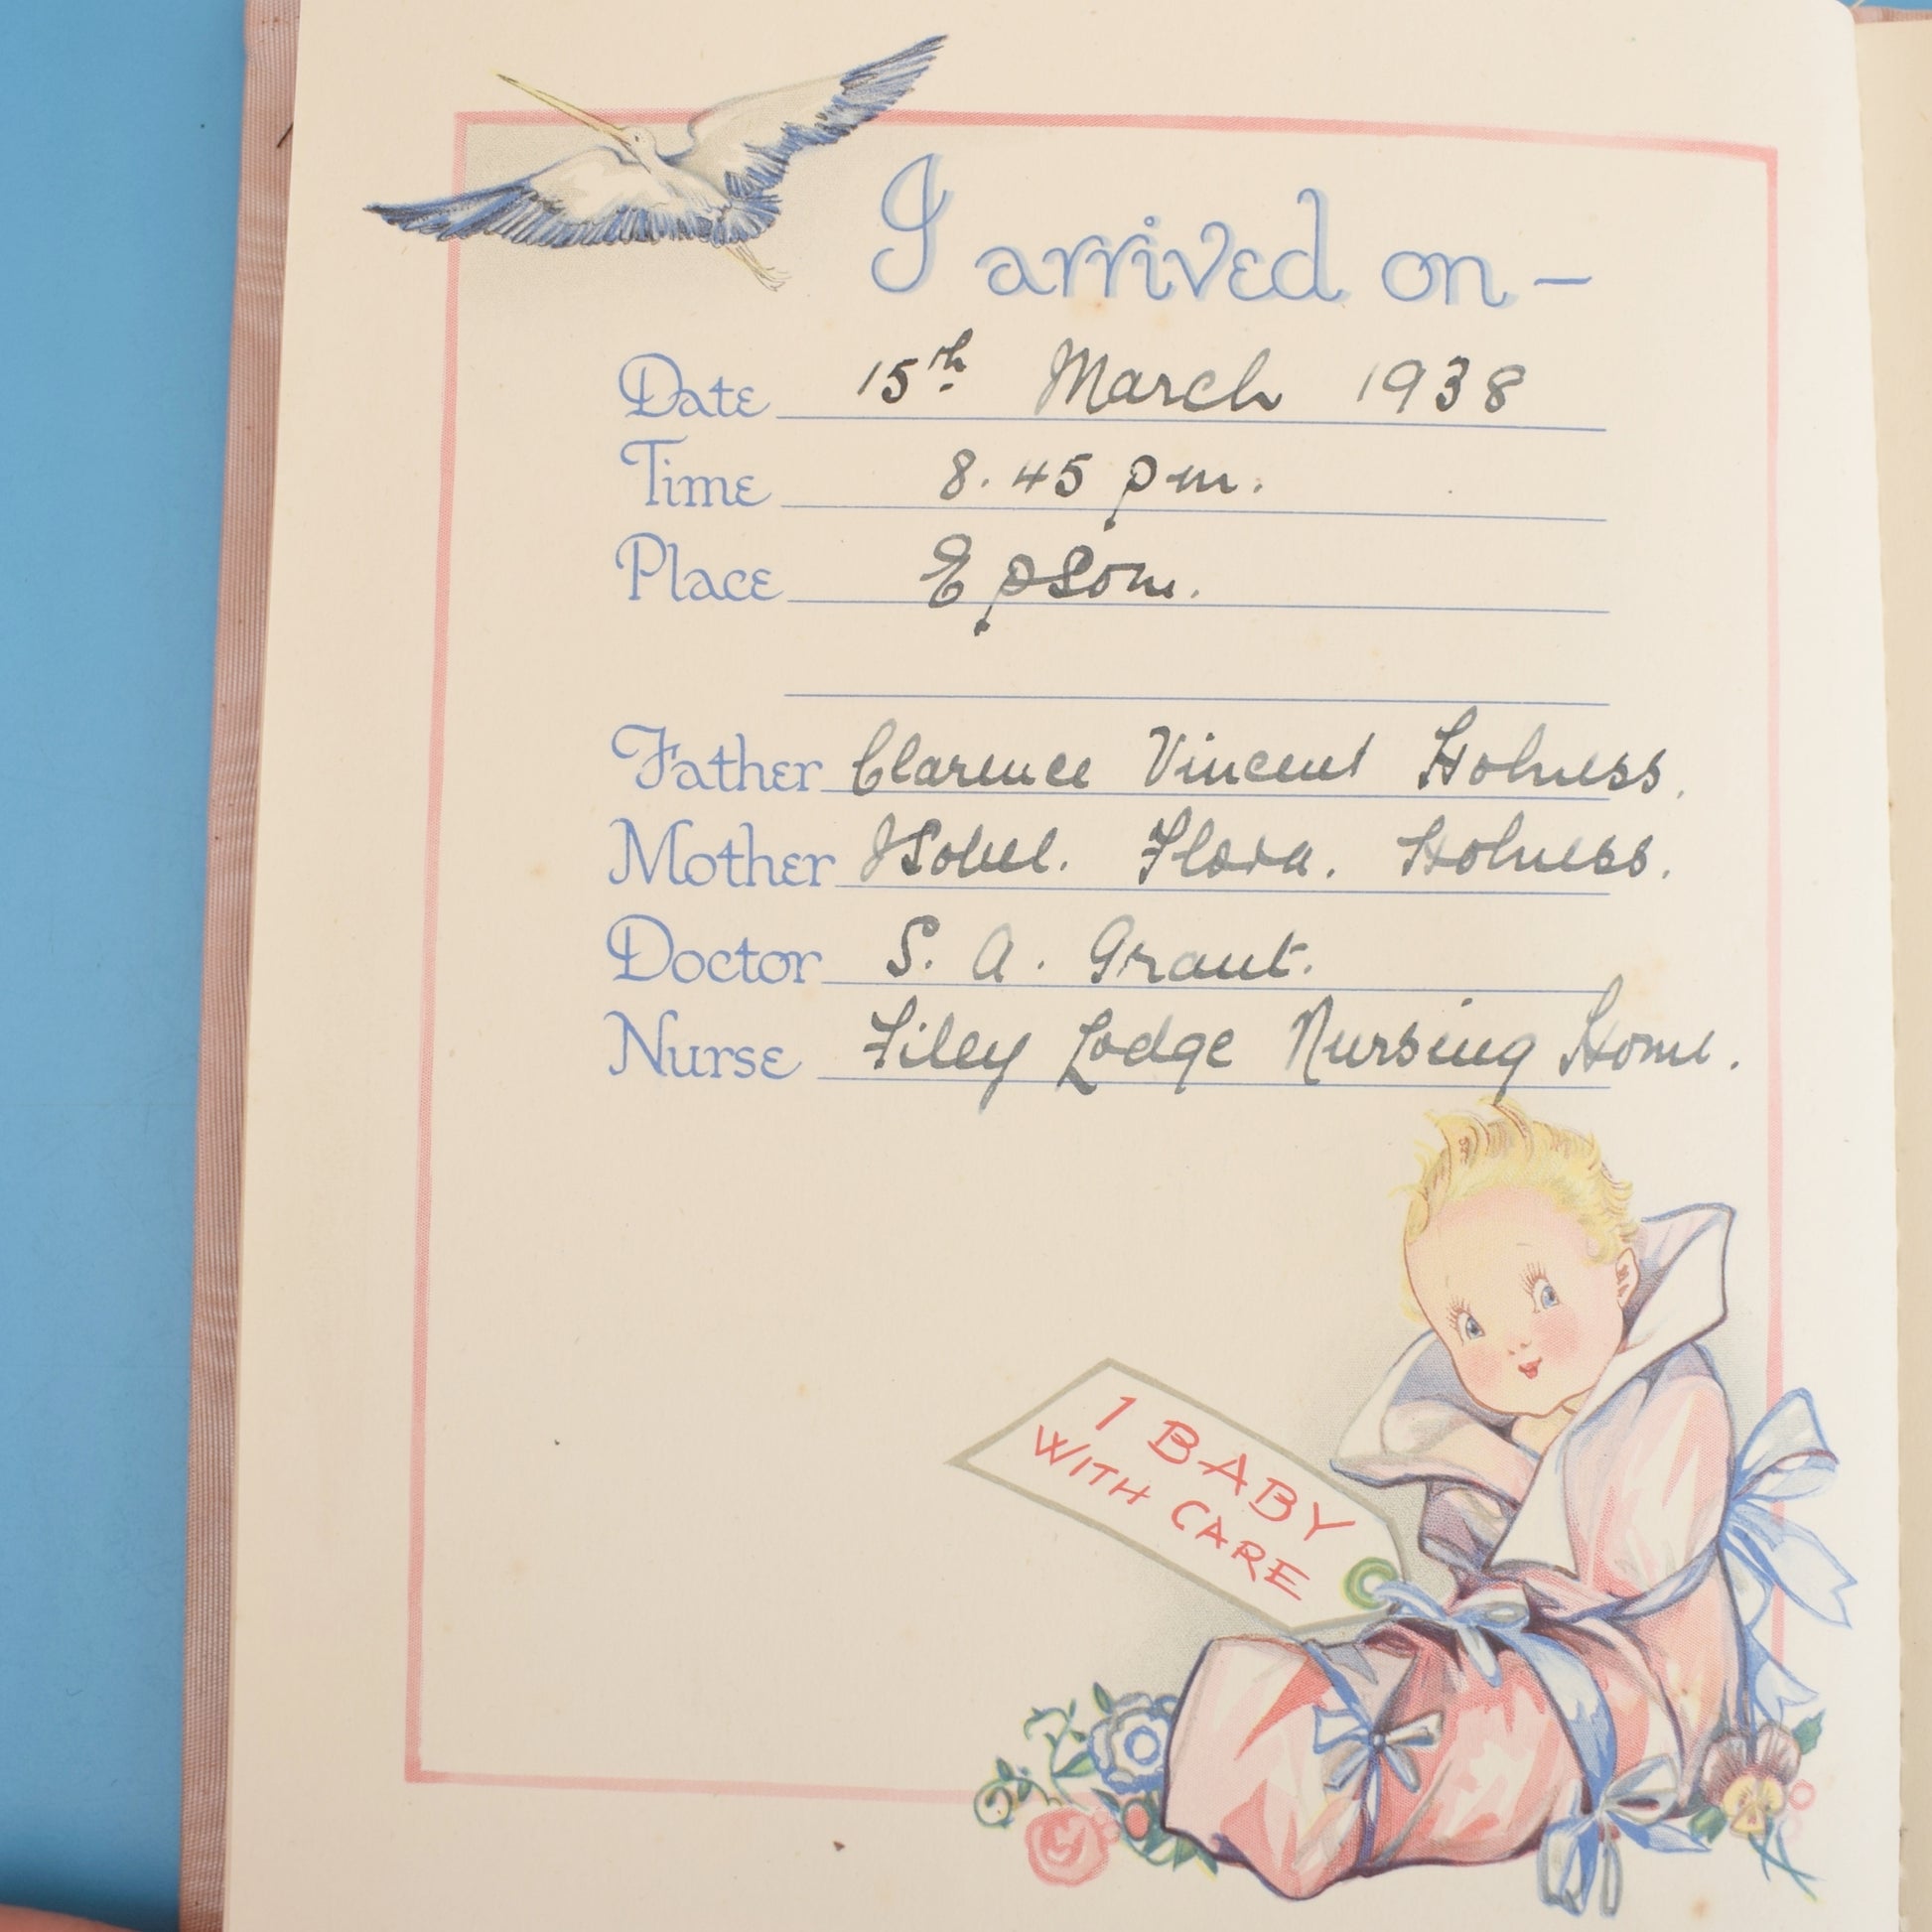 I arrived on –
Date 15th March 1938
Time 8.45 pm.
Place Epsom.
Father Clarence Vincent Holness.
Mother Isobel. Flora. Holness.
Doctor S. A. Grant.
Nurse Filey Lodge Nursing Home.
1 BABY
WITH CARE